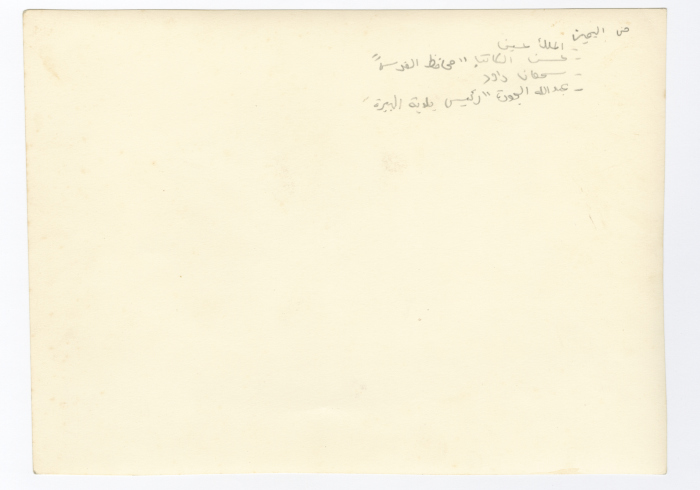 من اليمين
- الملك حسين
- حسن الكاتب "محافظ القدس"
- سمعان داود
- عبدالله الجودة "رئيس بلدية البيرة"